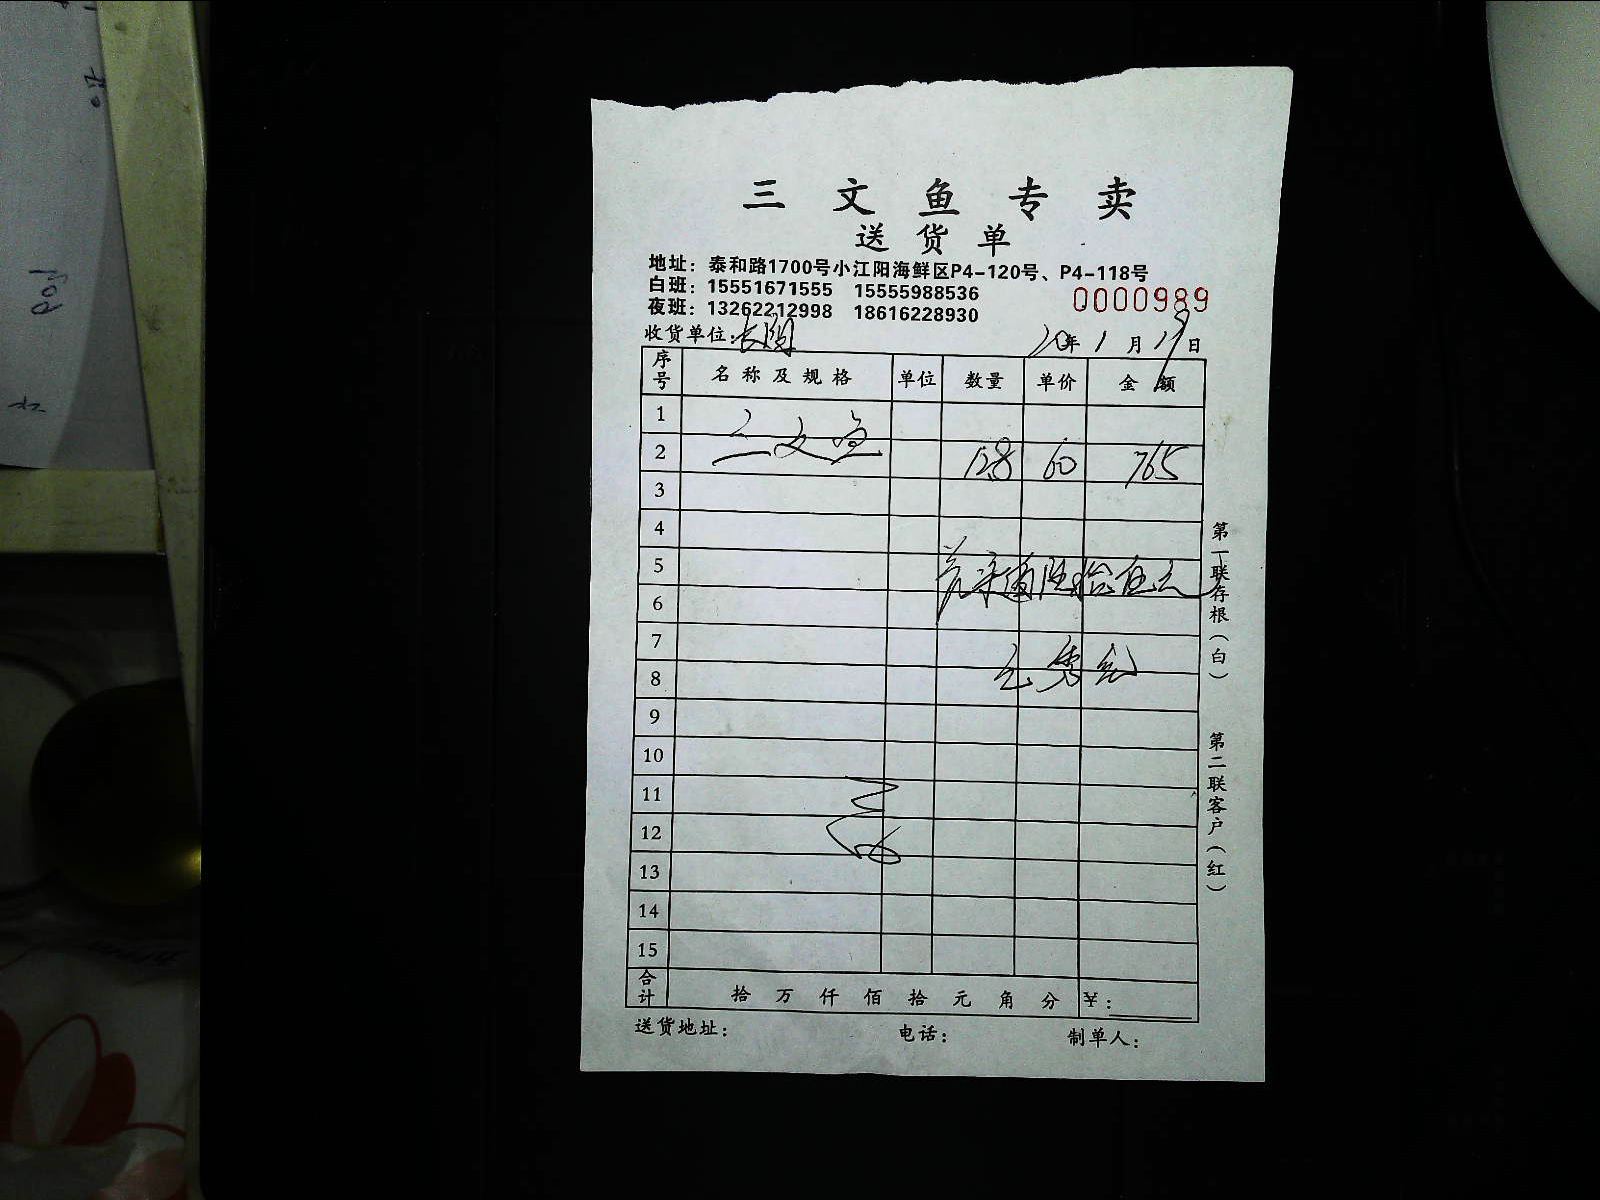 三文鱼专卖
送货单
地址：泰和路1700号小江阳海鲜区P4-120号、P4-118号
白班：15551671555 15555988536
夜班：13262212998 18616228930
0000989
收货单位： 20年1月19日
序号 名称及规格 单位 数量 单价 金额
1
2 三文鱼 128 60 765
3
4
5
6
7
8
9
10
11
12
13
14
15
合计 拾万仟佰拾元角分 ¥：
送货地址： 电话： 制单人：
第一联存根（白）
第二联客户（红）